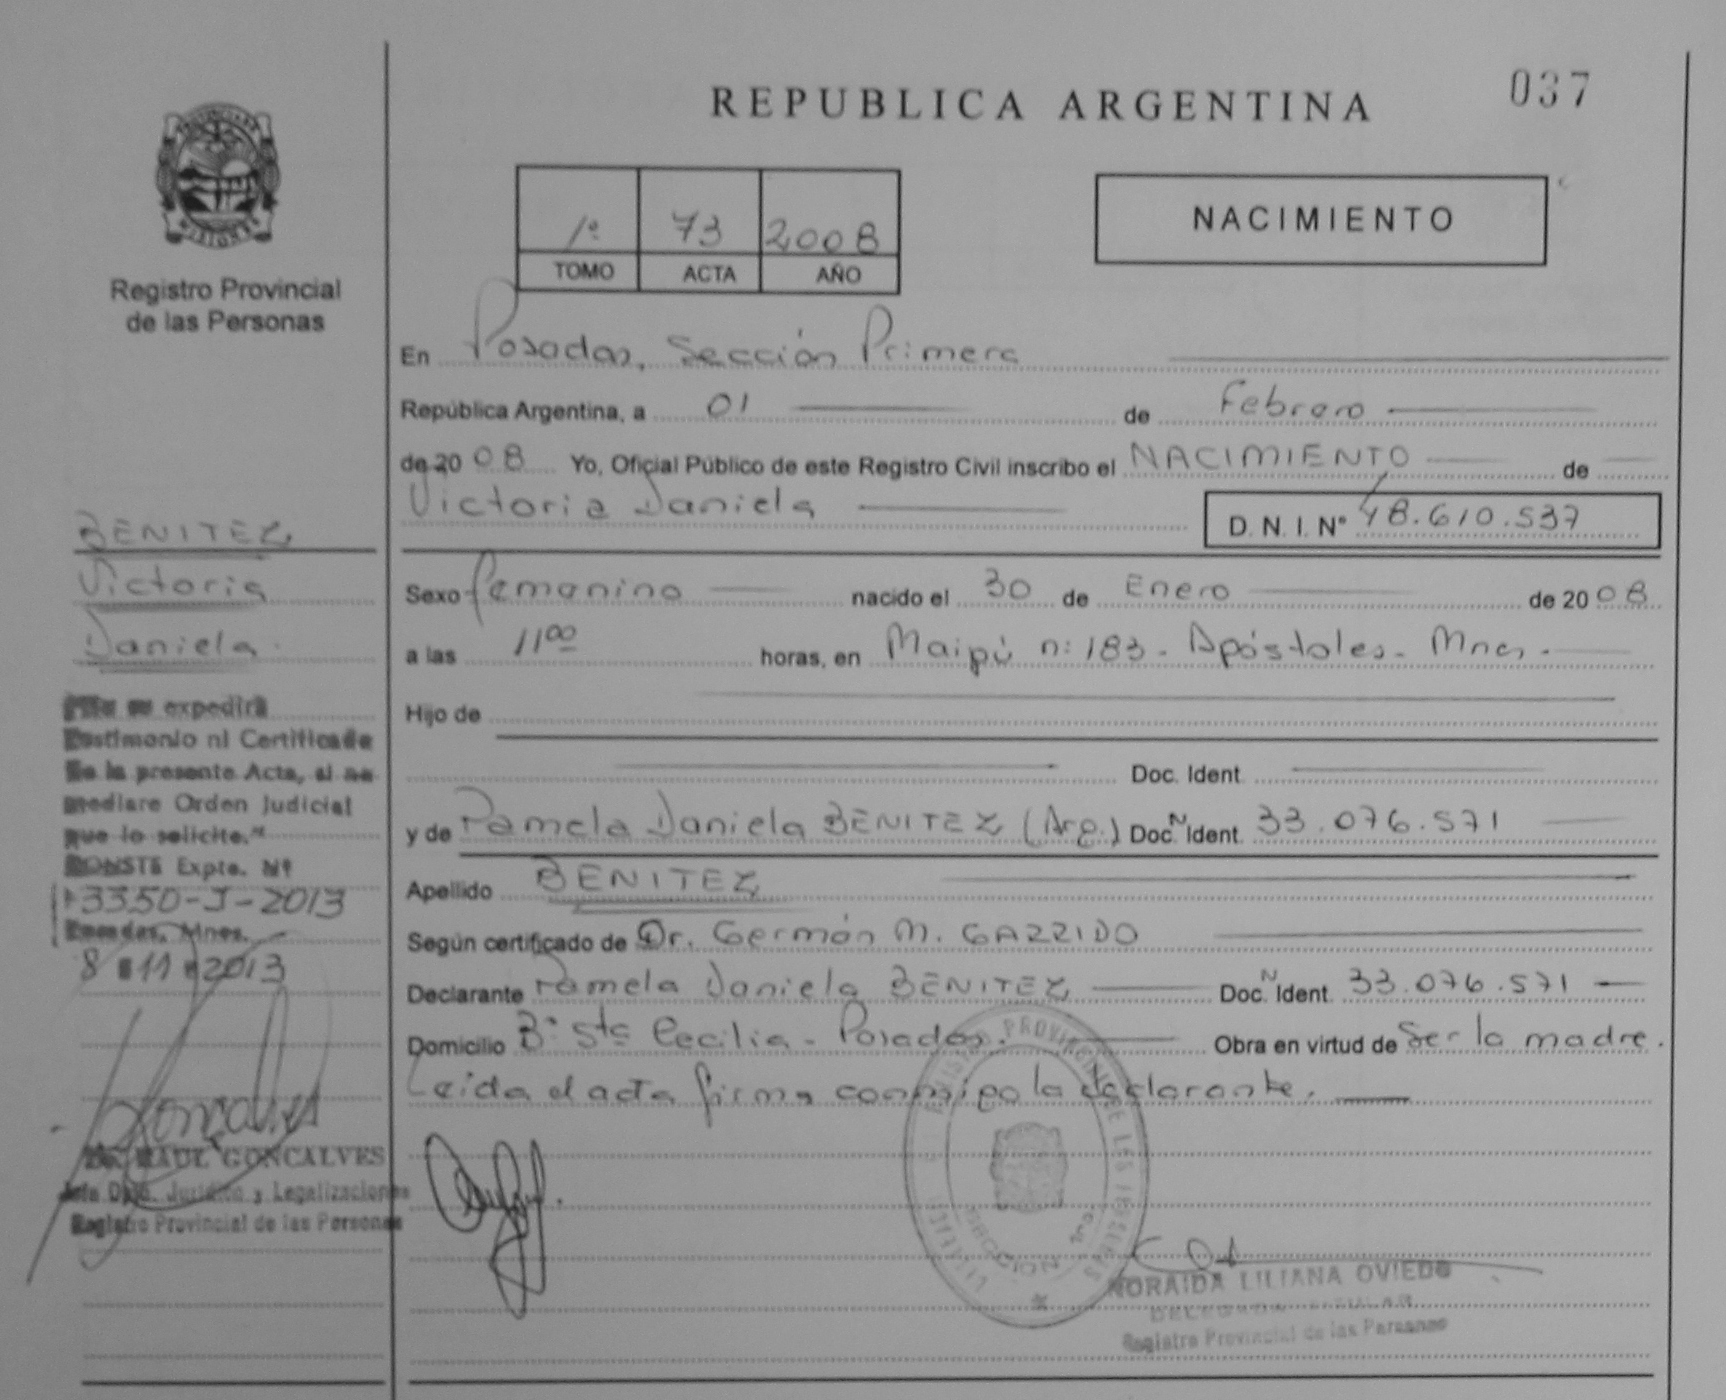 037
REPUBLICA ARGENTINA
PROVINCIA DE
MISIONES
Registro Provincial
de las Personas
1º 73 2008
TOMO ACTA AÑO
NACIMIENTO
En Posadas, Sección Primera
República Argentina, a 01 de Febrero
de 2008 Yo, Oficial Público de este Registro Civil inscribo el NACIMIENTO de
Victoria Daniela
D. N. I. Nº 48.610.537
BENITEZ
Victoria
Daniela.
Sexo femenino nacido el 30 de Enero de 2008
a las 11 00 horas, en Maipú n: 183 - Apóstoles - Mnes.
Hijo de
Doc. Ident.
y de Pamela Daniela BENITEZ (Arg.) Doc. N Ident. 33.076.571
Apellido BENITEZ
Según certificado de Dr. Germán M. GARRIDO
Declarante Pamela Daniela BENITEZ Doc. N Ident. 33.076.571
Domicilio Bº Sta Cecilia - Posadas. Obra en virtud de Ser la madre.
Leida el acta firma conmigo la declarante.
su expedirá
Testimonio ni Certificado
De la presente Acta, si no
mediare Orden Judicial
que lo solicite."
CONSTE Expte. Nº
3350-J-2013
Posadas, Mnes.
8 11 2013
Dr. RAUL GONCALVES
Jefe Dpto. Jurídico y Legalizaciones
Registro Provincial de las Personas
REGISTRO PROVINCIAL DE LAS PERSONAS
SECCION 1ra
NORAIDA LILIANA OVIEDO
DELEGADA TITULAR
Registro Provincial de las Personas